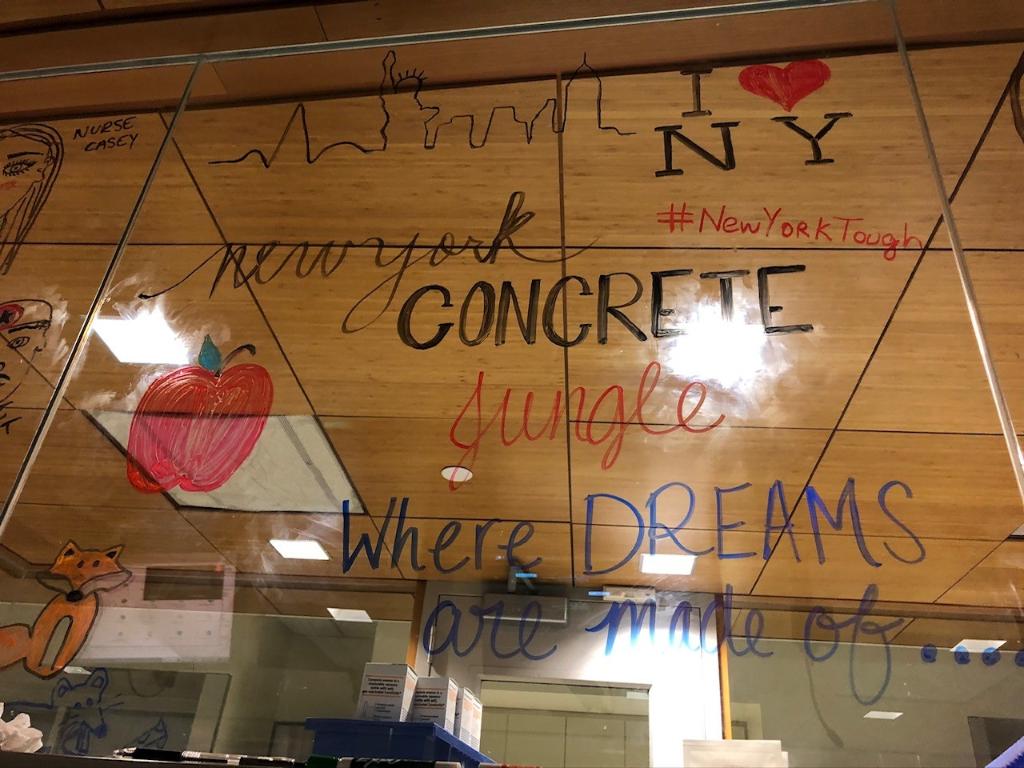 NURSE
CASEY
I
NY
#NewYorkTough
new york
CONCRETE
jungle
Where DREAMS
are made of.....